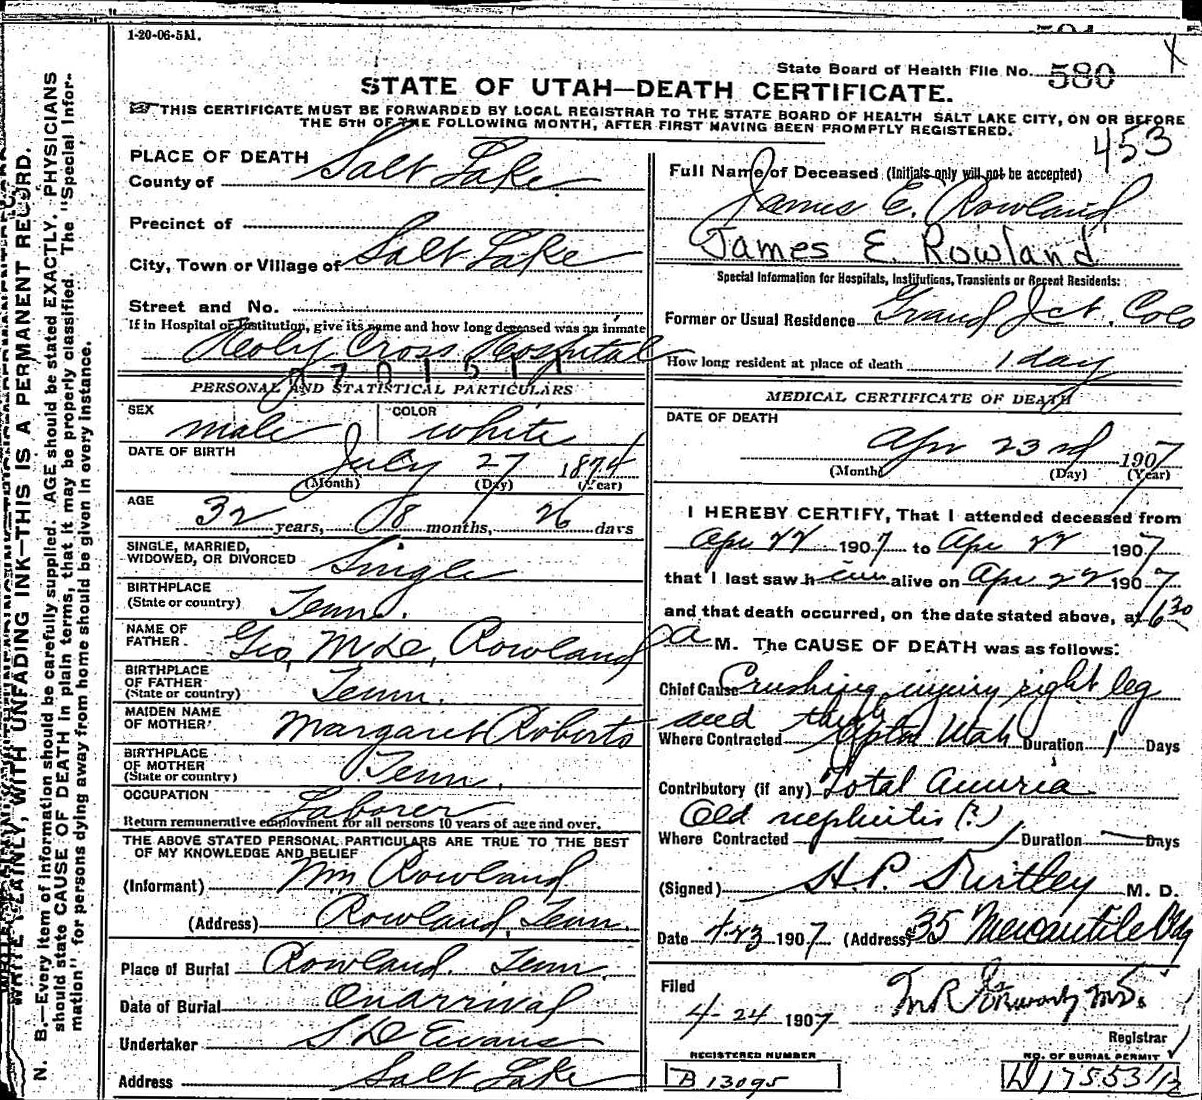 1-20-06-5M.
State Board of Health File No. 580
STATE OF UTAH—DEATH CERTIFICATE.
THIS CERTIFICATE MUST BE FORWARDED BY LOCAL REGISTRAR TO THE STATE BOARD OF HEALTH SALT LAKE CITY, ON OR BEFORE
THE 5TH OF THE FOLLOWING MONTH, AFTER FIRST HAVING BEEN PROMPTLY REGISTERED.
453
PLACE OF DEATH
County of Salt Lake
Precinct of
City, Town or Village of Salt Lake
Street and No.
If in Hospital or Institution, give its name and how long deceased was an inmate
Holy Cross Hospital
PERSONAL AND STATISTICAL PARTICULARS
SEX male COLOR white
DATE OF BIRTH July 27 1874
(Month) (Day) (Year)
AGE 32 years, 08 months, 26 days
SINGLE, MARRIED,
WIDOWED, OR DIVORCED Single
BIRTHPLACE
(State or country) Tenn.
NAME OF
FATHER Geo, McD, Rowland
BIRTHPLACE
OF FATHER
(State or country) Tenn.
MAIDEN NAME
OF MOTHER Margaret Roberts
BIRTHPLACE
OF MOTHER
(State or country) Tenn.
OCCUPATION Laborer
Return remunerative employment for all persons 10 years of age and over.
THE ABOVE STATED PERSONAL PARTICULARS ARE TRUE TO THE BEST
OF MY KNOWLEDGE AND BELIEF
(Informant) Wm Rowland
(Address) Rowland, Tenn.
Place of Burial Rowland. Tenn.
Date of Burial On arrival
Undertaker S D Evans
Address Salt Lake
Full Name of Deceased (Initials only will not be accepted)
James E. Rowland
James E. Rowland
Special Information for Hospitals, Institutions, Transients or Recent Residents:
Former or Usual Residence Grand Jct. Colo
How long resident at place of death 1 day
MEDICAL CERTIFICATE OF DEATH
DATE OF DEATH
Apr 23rd 1907
(Month) (Day) (Year)
I HEREBY CERTIFY, That I attended deceased from
Apr 22 1907 to Apr 22 1907
that I last saw him alive on Apr 22 1907
and that death occurred, on the date stated above, at 6 30
a M. The CAUSE OF DEATH was as follows:
Chief Cause Crushing injury right leg
and thigh
Where Contracted Utah Duration 1 Days
Contributory (if any) Total Anuria
Old nephritis (?)
Where Contracted Duration Days
(Signed) H. P. Kirtley M. D.
Date 4-23 1907 (Address) 35 Mercantile Bldg
Filed
4-24 1907
Registrar
REGISTERED NUMBER
B 13095
NO. OF BURIAL PERMIT
D 17553 1/2
WRITE PLAINLY, WITH UNFADING INK—THIS IS A PERMANENT RECORD.
N. B.—Every item of information should be carefully supplied. AGE should be stated EXACTLY. PHYSICIANS
should state CAUSE OF DEATH in plain terms, that it may be properly classified. The "Special Infor-
mation" for persons dying away from home should be given in every instance.